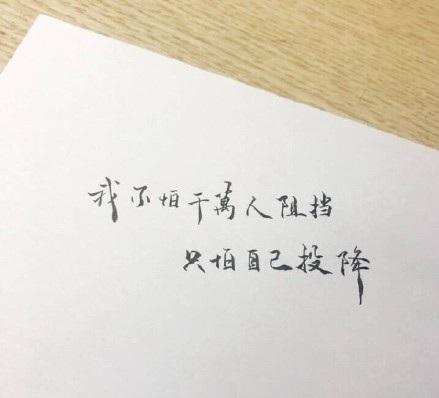 我不怕千萬人阻挡
只怕自己投降